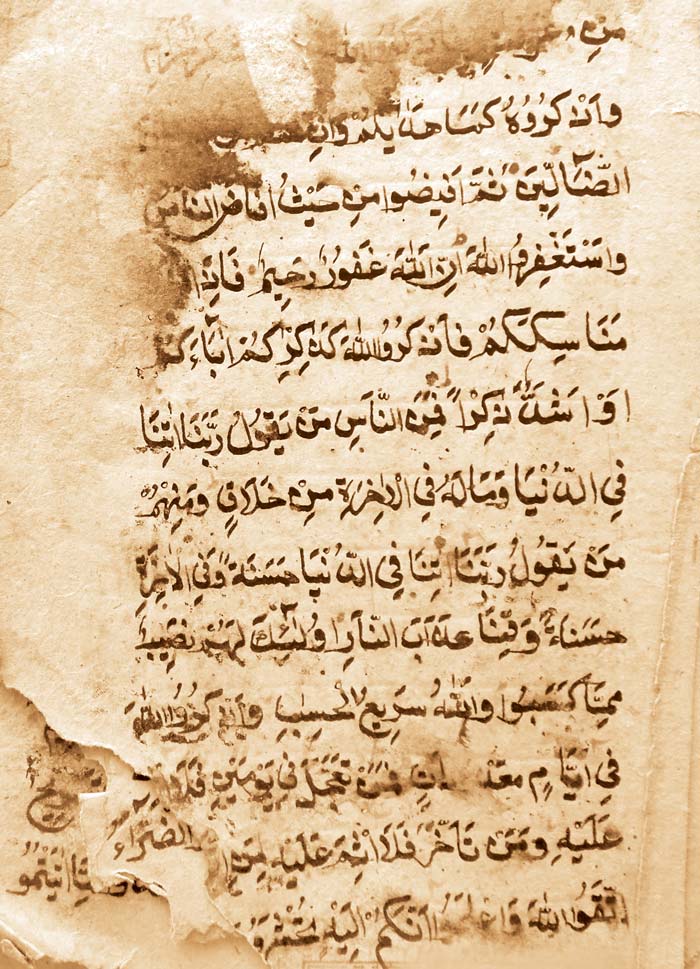 من عرفات
واذكروه كما هديكم وان
الضآلين ثم افيضوا من حيث افاض الناس
واستغفروا الله ان الله غفور رحيم فاذا
مناسككم فاذكروا الله كذكركم اباءكم
او اشد ذكرا فمن الناس من يقول ربنا اتنا
في الدنيا وماله في الاخرة من خلاق ومنهم
من يقول ربنا اتنا في الدنيا حسنة وفي الاخرة
حسنة وقنا عذاب النار اولئك لهم نصيب
مما كسبوا والله سريع الحساب واذكروا الله
في ايام معدودات فمن تعجل في يومين فلا
عليه ومن تاخر فلا اثم عليه لمن
الضراء
اتقوا الله واعلموا انكم اليه تحشرون